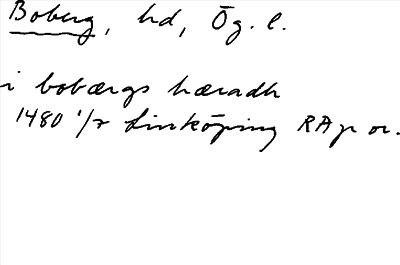 Boberg, hd, Ög. l.
i bobærgs hæradh
1480 1/7 Linköping RAp or.